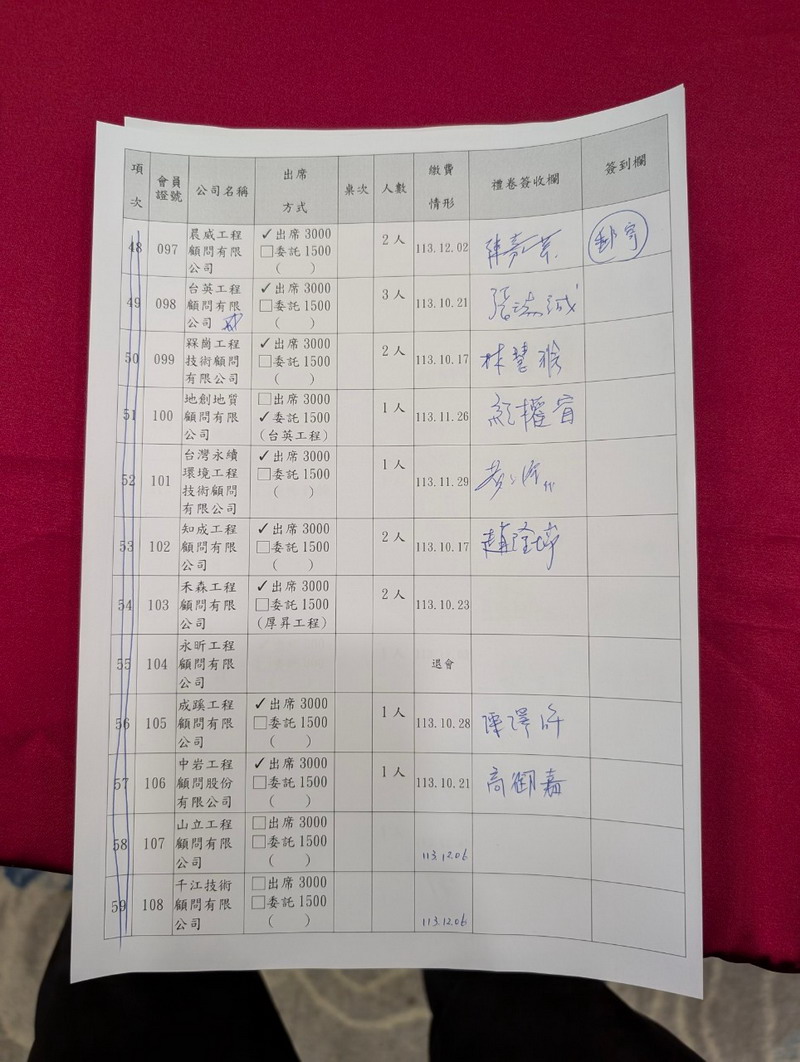 項次 會員證號 公司名稱 出席方式 桌次 人數 繳費情形 禮卷簽收欄 簽到欄
48 097 晨威工程顧問有限公司 ✓出席 3000 □委託 1500 ( ) 2人 113.12.02 郵寄
49 098 台英工程顧問有限公司 ✓出席 3000 □委託 1500 ( ) 3人 113.10.21
50 099 槑崗工程技術顧問有限公司 ✓出席 3000 □委託 1500 ( ) 2人 113.10.17 林慧雅
51 100 地創地質顧問有限公司 □出席 3000 ✓委託 1500 (台英工程) 1人 113.11.26
52 101 台灣永續環境工程技術顧問有限公司 ✓出席 3000 □委託 1500 ( ) 1人 113.11.29
53 102 知成工程顧問有限公司 ✓出席 3000 □委託 1500 ( ) 2人 113.10.17
54 103 禾森工程顧問有限公司 ✓出席 3000 □委託 1500 (厚昇工程) 2人 113.10.23
55 104 永昕工程顧問有限公司 退會
56 105 成蹊工程顧問有限公司 ✓出席 3000 □委託 1500 ( ) 1人 113.10.28
57 106 中岩工程顧問股份有限公司 ✓出席 3000 □委託 1500 ( ) 1人 113.10.21
58 107 山立工程顧問有限公司 □出席 3000 □委託 1500 ( ) 113.12.06
59 108 千江技術顧問有限公司 □出席 3000 □委託 1500 ( ) 113.12.06